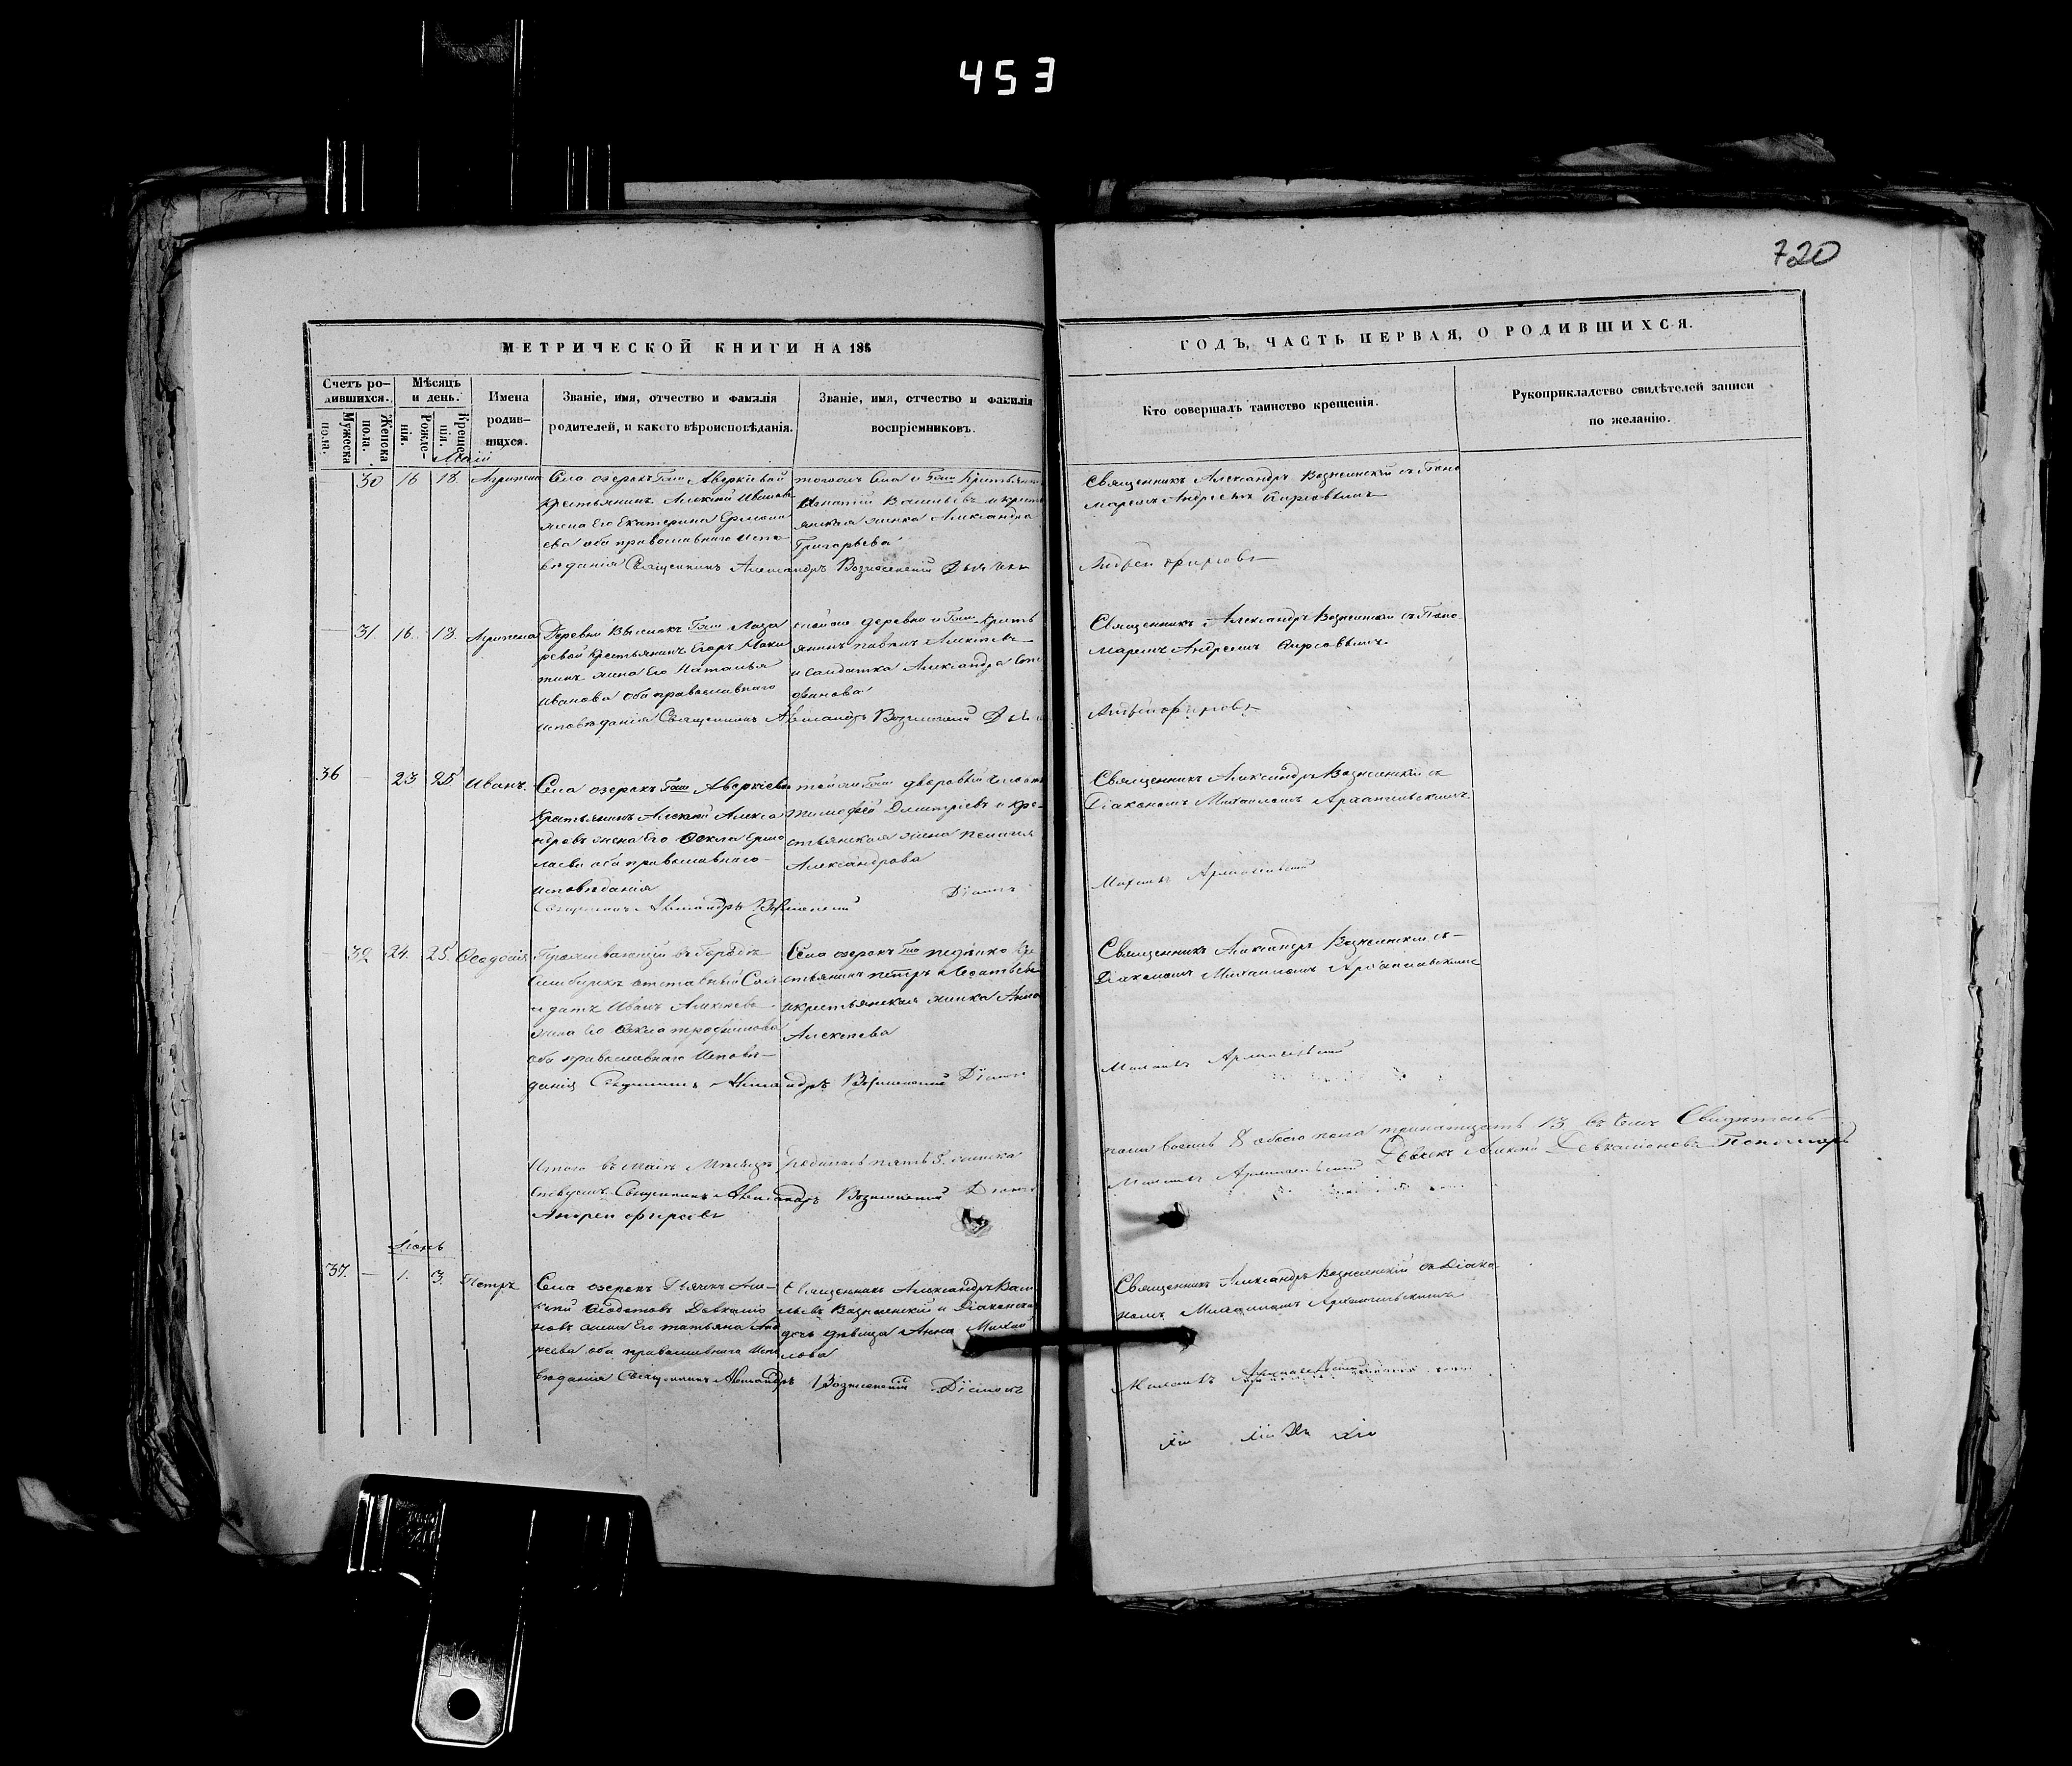 453
720
МЕТРИЧЕСКОЙ КНИГИ НА 185
ГОДЪ, ЧАСТЬ ПЕРВАЯ, О РОДИВШИХСЯ.
Счетъ ро-
дившихся.
Мужеска пола.
Женска пола.
Мѣсяцъ
и день.
Рожде-
нія.
Креще-
нія.
Имена
родив-
шихся.
Званіе, имя, отчество и фамилія
родителей, и какого вѣроисповѣданія.
Званіе, имя, отчество и фамилія
воспріемниковъ.
Кто совершалъ таинство крещенія.
Рукоприкладство свидѣтелей записи
по желанію.
Маій
30 16 18
Села озерокъ Гжи Аверкіевой
крестьянинъ Алексѣй Ивановъ
жена Его Екатерина
ева оба православнаго испо
вѣданія Священникъ Александръ Вознесенскій Дьячекъ
тогожъ Села и Гжи крестьянинъ
Васильевъ и крест
янская жонка Александра
Григорьева
Священникъ Александръ Вознесенскій съ Поно
маремъ Андреемъ Фирсовымъ
Андрей Фирсовъ
31 16 18
Деревни Гжи Лаза
ревой крестьянинъ Егоръ Ники
тинъ жена Его Наталья
Иванова оба православнаго
исповѣданія Священникъ Александръ Вознесенскій
тойже деревни и Гжи крестья
янинъ Павелъ Алексѣевъ
и солдатка Александра Сте
фанова
Священникъ Александръ Вознесенскій съ Поно-
маремъ Андреемъ Фирсовымъ
Андрей Фирсовъ
36 — 23 25 Иванъ.
Села озерокъ Гжи Аверкіевой
крестьянинъ Алексѣй Алекса
ндровъ жена Его Фекла Ермо
лаева оба православнаго
исповѣданія
Священникъ Александръ Вознесенскій Діаконъ
тойже Гжи дворовый человѣкъ
Тимофей Дмитріевъ и кре-
стьянская жена Пелагія
Александрова
Священникъ Александръ Вознесенскій съ
Діакономъ Михаиломъ Архангельскимъ
Михаилъ Архангельскій
32 24. 25. Феодосія
Проживающій въ Городѣ
Симбирскѣ отставный Сол
датъ Иванъ Алексѣевъ
жена Его Фекла Трофимова
оба православнаго Исповѣ-
данія Священникъ Александръ Вознесенскій Діаконъ
Села озерокъ Гжи кре
стьянинъ Петръ
и крестьянская жонка Анна
Алексѣева
Священникъ Александръ Вознесенскій съ
Діакономъ Михаиломъ Архангельскимъ
Михаилъ Архангельскій
Итого въ Маіѣ Мѣсяцѣ родилось пять 5. женска
пола восемь 8 обоего пола тринатцать 13 въ чемъ Свидѣтель-
ствуемъ Священникъ Александръ Вознесенскій Діаконъ
Михаилъ Архангельскій Дьячекъ Алексѣй Девкаліоновъ Пономарь
Андрей Фирсовъ
Іюнь
37. — 1. 3. Петръ
Села озерокъ Дьячекъ Але-
ксѣй Феодотовъ Девкаліо
новъ жена Его Татьяна
оба православнаго Испо
вѣданія Священникъ Александръ Вознесенскій Діаконъ
Священникъ Александръ Васи
льевъ Вознесенскій и Діаконска
дочь дѣвица Анна Михай
лова
Священникъ Александръ Вознесенскій съ Діако
номъ Михаиломъ Архангельскимъ
Михаилъ Архангельскій